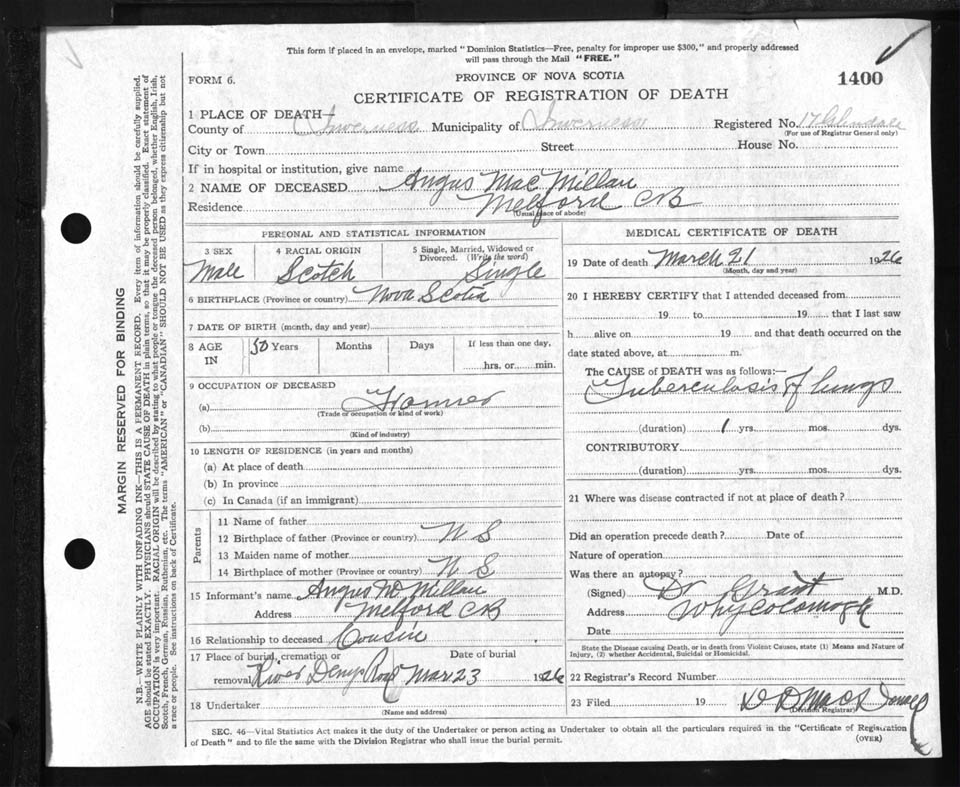 This form if placed in an envelope, marked "Dominion Statistics—Free, penalty for improper use $300," and properly addressed
will pass through the Mail "FREE."
FORM 6.
PROVINCE OF NOVA SCOTIA
1400
CERTIFICATE OF REGISTRATION OF DEATH
1 PLACE OF DEATH
County of Inverness Municipality of Inverness Registered No. 17 Glendale
(For use of Registrar General only)
City or Town Street House No.
If in hospital or institution, give name
2 NAME OF DECEASED Angus MacMillan
Residence Melford CB
(Usual place of abode)
PERSONAL AND STATISTICAL INFORMATION
3 SEX 4 RACIAL ORIGIN 5 Single, Married, Widowed or Divorced. (Write the word)
Male Scotch Single
6 BIRTHPLACE (Province or country) Nova Scotia
7 DATE OF BIRTH (month, day and year)
8 AGE IN 50 Years Months Days If less than one day, hrs. or min.
9 OCCUPATION OF DECEASED
(a) Farmer
(Trade or occupation or kind of work)
(b)
(Kind of industry)
10 LENGTH OF RESIDENCE (in years and months)
(a) At place of death
(b) In province
(c) In Canada (if an immigrant)
Parents
11 Name of father
12 Birthplace of father (Province or country) N S
13 Maiden name of mother
14 Birthplace of mother (Province or country) N S
15 Informant's name Angus Millan
Address Melford CB
16 Relationship to deceased Cousin
17 Place of burial, cremation or removal River Denys Road Date of burial Mar 23 1926
18 Undertaker
(Name and address)
MEDICAL CERTIFICATE OF DEATH
19 Date of death March 21 1926
(Month, day and year)
20 I HEREBY CERTIFY that I attended deceased from
19 to 19 that I last saw
h alive on 19 and that death occurred on the
date stated above, at m.
The CAUSE of DEATH was as follows:—
Tuberculosis of lungs
(duration) 1 yrs. mos. dys.
CONTRIBUTORY
(duration) yrs. mos. dys.
21 Where was disease contracted if not at place of death?
Did an operation precede death? Date of
Nature of operation
Was there an autopsy?
(Signed) Dr Grant M.D.
Address Whycocomagh
Date
State the Disease causing Death, or in death from Violent Causes, state (1) Means and Nature of
Injury, (2) whether Accidental, Suicidal or Homicidal.
22 Registrar's Record Number
23 Filed 19 D D MacDonald
(Division Registrar)
SEC. 46—Vital Statistics Act makes it the duty of the Undertaker or person acting as Undertaker to obtain all the particulars required in the "Certificate of Registration
of Death" and to file the same with the Division Registrar who shall issue the burial permit.
(OVER)
MARGIN RESERVED FOR BINDING
N.B.—WRITE PLAINLY WITH UNFADING INK—THIS IS A PERMANENT RECORD. Every item of information should be carefully supplied.
AGE should be stated EXACTLY. PHYSICIANS should STATE CAUSE OF DEATH in plain terms, so that it may be properly classified. Exact statement of
OCCUPATION is very important. RACIAL ORIGIN will be described by stating to what people or tongue the deceased person belonged, whether English, Irish,
Scotch, French, German, Russian, Ruthenian, etc. The terms "AMERICAN" or "CANADIAN" SHOULD NOT BE USED as they express citizenship but not
a race or people. See instructions on back of Certificate.